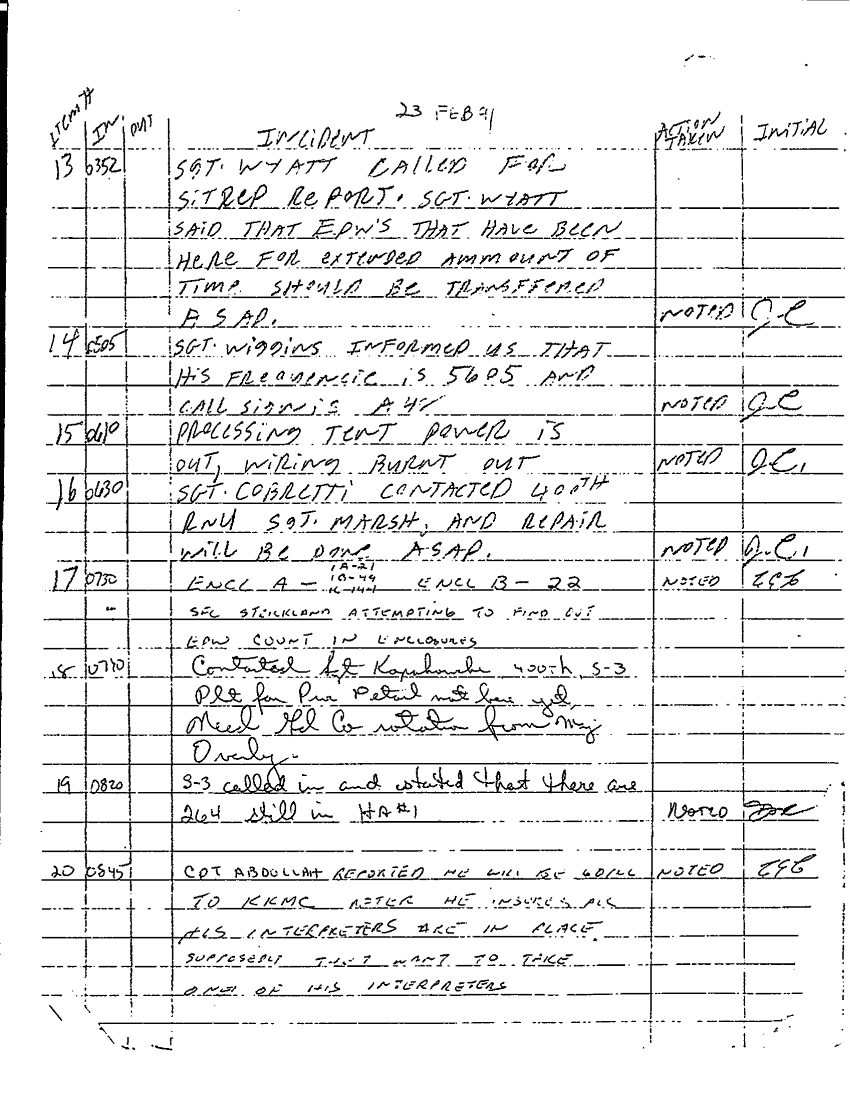 23 FEB 91
ITEM # IN OUT INCIDENT ACTION TAKEN INITIAL
13 0352 SGT. WYATT CALLED FOR
SITREP REPORT. SGT. WYATT
SAID THAT EPW'S THAT HAVE BEEN
HERE FOR EXTENDED AMMOUNT OF
TIME SHOULD BE TRANSFFERED
ASAP. NOTED J.C
14 0505 SGT. WIGGINS INFORMED US THAT
HIS FREQENCIE IS 5605 AND
CALL SIGN IS NOTED J.C
15 0610 PROCESSING TENT POWER IS
OUT, WIRING BURNT OUT NOTED J.C.
16 0630 SGT. COBRETTI CONTACTED 400TH
SGT. MARSH, AND REPAIR
WILL BE DONE ASAP. NOTED J.C.
17 0730 ENCL A - 1A-21 1B-44 1C-144 ENCL B - 22 NOTED
" SFC STRICKLAND ATTEMPTING TO FIND OUT
EPW COUNT IN ENCLOSURES
18 Contacted 400th, S-3
Plt for Detail not here yet,
Need Gd Co rotation from Maj
Overly.
19 0820 S-3 called in and stated that there are
264 still in HA#1 NOTED
20 0845 CPT ABDULLAH REPORTED HE WILL BE GOING NOTED
TO KKMC AFTER HE INSURES ALL
HIS INTERPRETERS ARE IN PLACE.
SUPPOSEDLY THEY WANT TO TAKE
ONE OF HIS INTERPRETERS